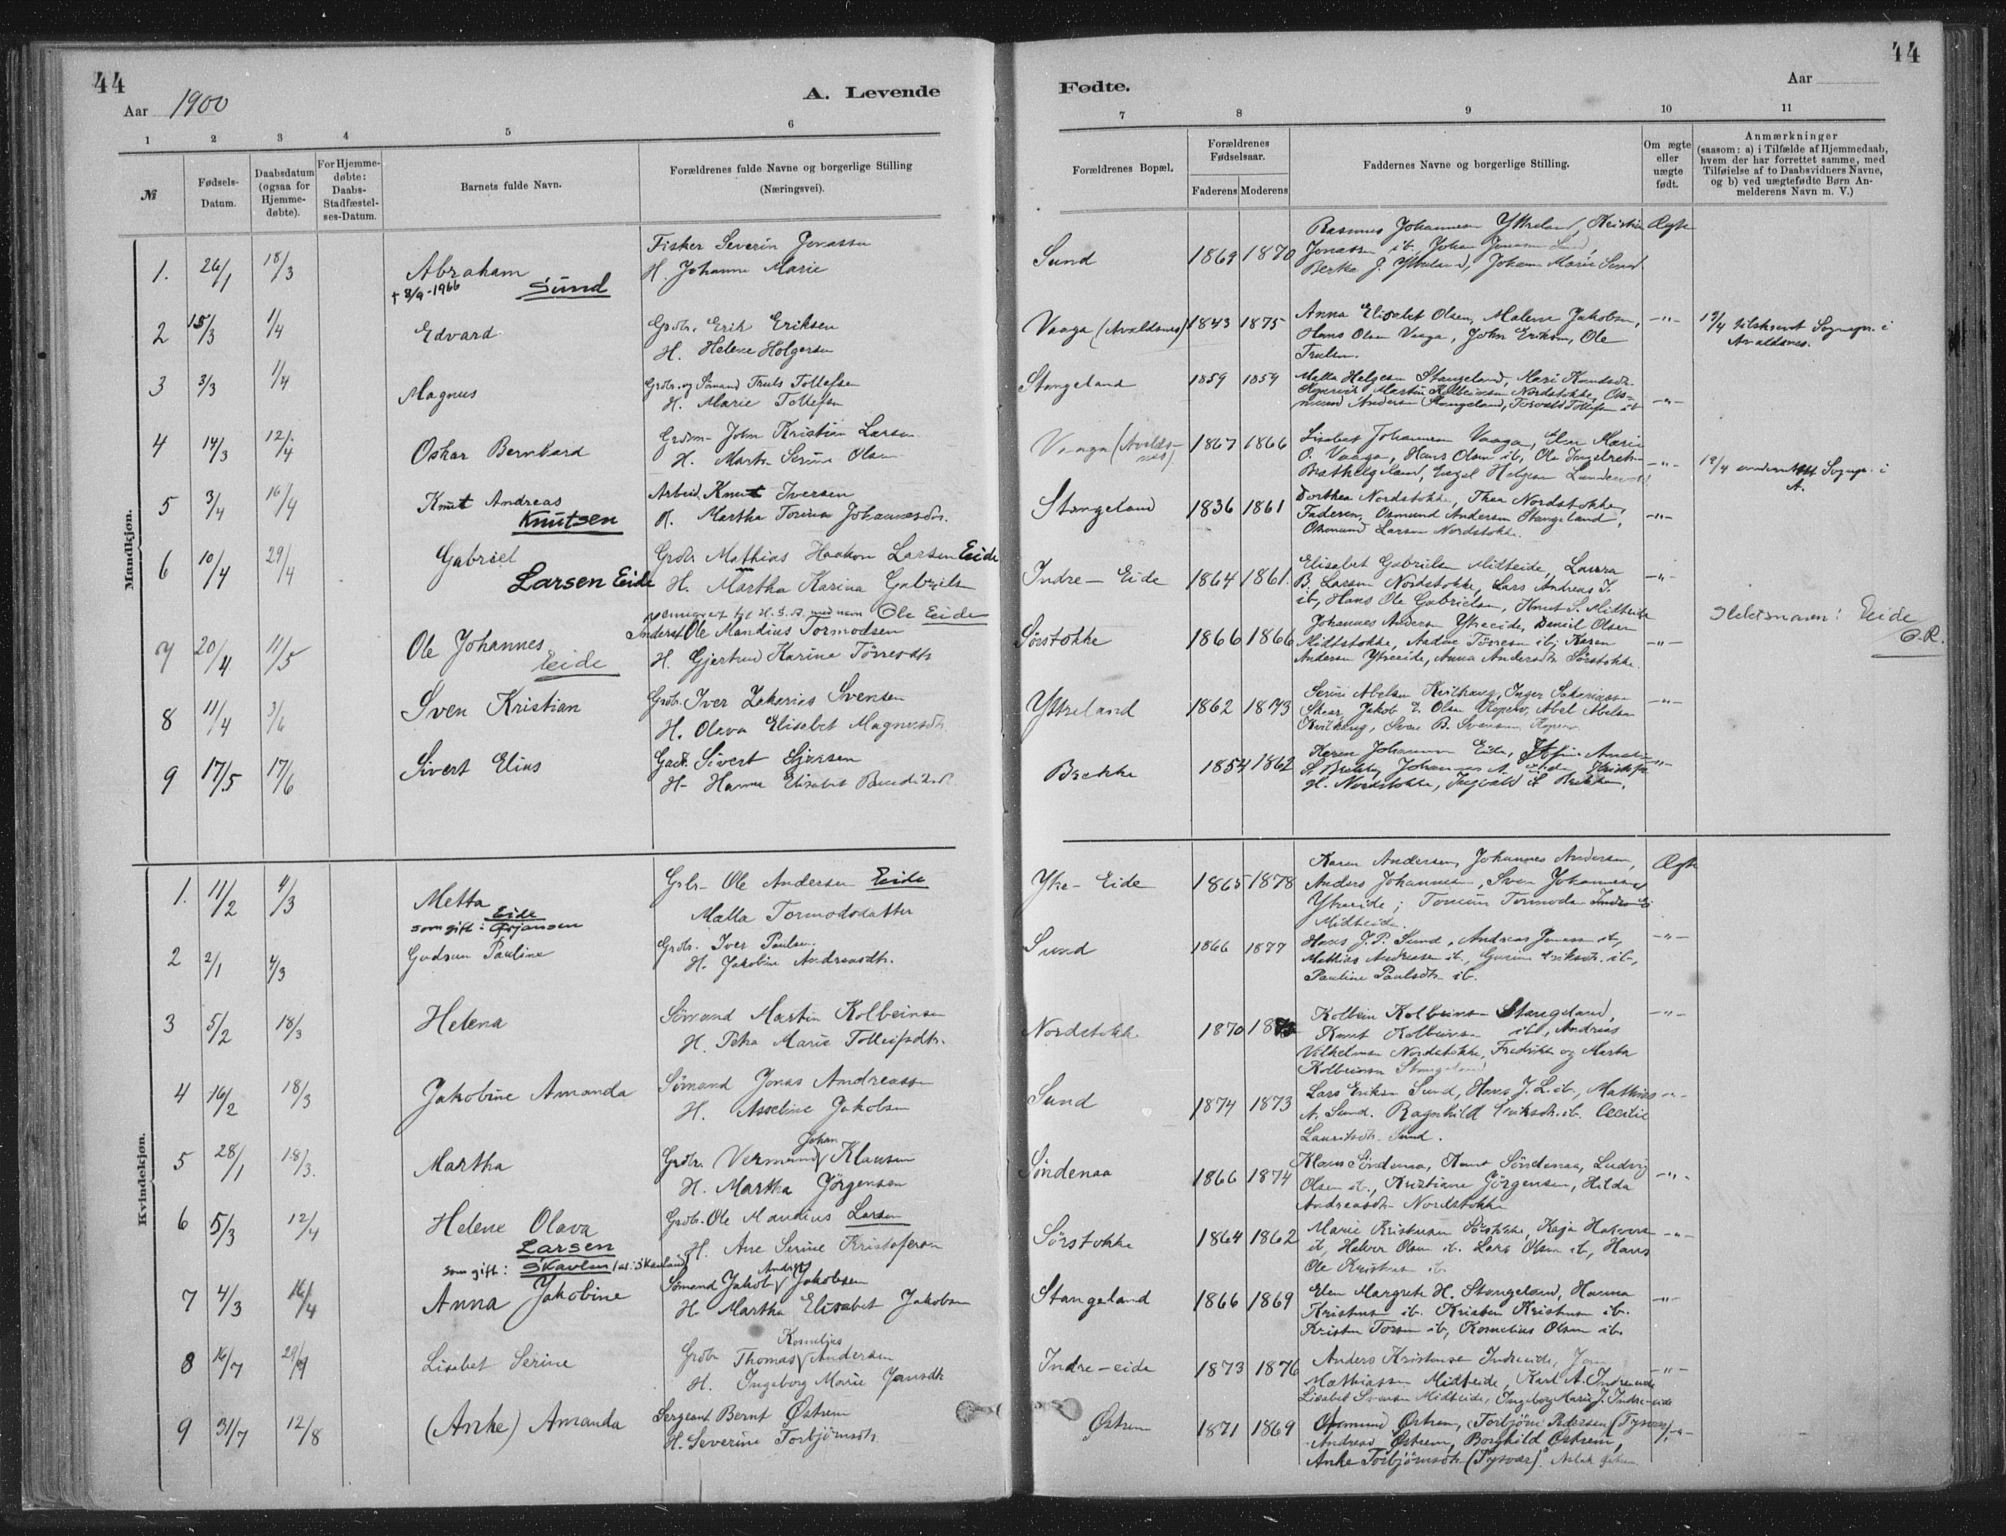 44
Aar 1900
A. Levende
1 2 3 4 5 6
№
Fødsels-Datum.
Daabsdatum (ogsaa for Hjemme-døbte).
For Hjemme-døbte: Daabs-Stadfæstel-ses-Datum.
Barnets fulde Navn.
Forældrenes fulde Navne og borgerlige Stilling
(Næringsvei).
Mandkjøn.
1. 26/1 18/3 Abraham
† 8/9-1966 Sund
Fisker Severin Jonassen
H. Johanne Marie
2 15/3 1/4 Edvard
Grdbr. Erik Eriksen
H. Helene Holgersen
3 3/3 1/4 Magnus
Grdbr. og Sømand Truls Tollefsen
H. Marie Tollefsen
4 14/3 12/4 Oskar Bernhard
Grdm. John Kristian Larsen
H. Marta Serine Olsen
5 3/4 16/4 Knut Andreas
Knutsen
Arbeid. Knut Iversen
H. Martha Torina Johannesdtr.
6 10/4 29/4 Gabriel
Larsen Eide
Grdbr Mathias Haakon Larsen Eide
H. Martha Karina Gabrielsen
Ole Eide
7 20/4 11/5 Ole Johannes
Eide
Inderst Ole Mandius Tormodsen
H. Gjertrud Karine Törresdtr
8 11/4 3/6 Sven Kristian
Grdbr. Iver Zakarias Svensen
H. Olava Elisabet Magnusdtr.
9 17/5 17/6 Sivert Elias
Gdbr. Sivert
H. Hanna Elisabet
Kvindekjøn.
1. 11/2 4/3 Metta
Eide
som gift:
Grbr. Ole Andersen Eide
Malla Tormodsdatter
2 2/1 4/3 Gudrun Pauline
Grdbr. Iver Paulsen
H. Jakobine Andreasdtr.
3 5/2 18/3 Helena
Sömand Martin Kolbeinsen
H. Petra Marie Tolleifsdtr.
4 16/2 18/3 Jakobine Amanda
Sömand Jonas Andreassen
H. Asseline Jakobsen
5 28/1 18/3. Martha
Johan
Grdbr. Vermund Klausen
H. Martha Jörgensen
6 5/3 12/4 Helene Olava
Larsen
som gift: Skavlan
Grdbr. Ole Mandius Larsen
H. Ane Serine Kristofersen
7 4/3 16/4 Anna Jakobine
Andreas
Sömand Jakob Jakobsen
H. Martha Elisabet Jakobsen
8 16/7 29/7 Lisabet Serine
Kornelius
Grdbr Thomas Andersen
H. Ingeborg Marie Jonsdtr
9 31/7 12/8 (Anke) Amanda
Sergeant Bernt Østrem
H. Severine Torbjörnsdtr.
44
Fødte.
Aar
7 8 9 10 11
Forældrenes Bopæl.
Forældrenes Fødselsaar.
Faderens Moderens
Faddernes Navne og borgerlige Stilling.
Om ægte eller uægte født.
Anmærkninger
(saasom: a) i Tilfælde af Hjemmedaab, hvem der har forrettet samme, med Tilføielse af to Daabsvidners Navne, og b) ved uægtefødte Børn Anmelderens Navn m. V.)
Sund 1869 1870
Rasmus Johannesen Ytreland, Kristian
Jonassen ib., Johan Jonassen Sund,
Berta J. Ytreland, Johan Marie Sund.
Ægte
Vaaga (Avaldsnes) 1843 1875
Anna Elisabet Olsen, Malene Jakobsen,
Hans Olsen Vaaga, John Eriksen, Ole
-"-
19/4 tilskrevet Sognepr. i
Avaldsnes.
Stangeland 1859 1859
Malla Helgesen Stangeland, Mari Knudsdtr.
Martin Kolbeinsen Nordstokke, Os-
mund Andersen Stangeland, Torvald Tollefsen ib
-"-
Vaaga (Avaldsnes) 1867 1866
Lisabet Johannesen Vaaga, Elen Marie
O. Vaaga, Hans Olsen ib,
Helgesen
-"-
19/4 underrettet Sognepr. i
A.
Stangeland 1836 1861
Dorthea Nordstokke, Thea Nordstokke,
Faderen, Osmund Andersen Stangeland,
Osmund Larsen Nordstokke.
-"-
Indre-Eide 1864 1861.
Elisabet Gabrielsen Midteide, Laura
B. Larsen Nordstokke, Lars Andreas I.
ib, Hans Ole Gabrielsen, Knut S. Midteide
-"-
Sørstokke 1866 1866
Johannes Andersen Ytreeide, Daniel Olsen
Midtstokke, Andrea Törresen ib, Karen
Andersen Ytreeide, Anna Andersdtr Sörstokke.
-"-
Slektsnavn: Eide
O.R.
Ytreland 1862 1873
Serine Abelsen Kvilhaug, Inger Sakariasen
Skaar, Jakob Z. Olsen Abel Abelsen
Kvilhaug, Sven B. Svensen
-"-
Brekke 1854 1862
Karen Johannesen Eide,
H. Nordstokke, Ingvald S. Brekken.
-"-
Ytre-Eide 1865 1878
Karen Andersen, Johannes Andersen,
Anders Johannesen, Sven Johannesen
Ytreeide;
Midteide.
Ægte
Sund 1866 1877
Hans J.P. Sund, Andreas Jonassen ib,
Mathias Andreasen ib, Gurine Eriksdtr. ib.,
Pauline Paulsdtr ib.
-"-
Nordstokke 1870
Kolbein Kolbeinsen Stangeland,
Knut Kolbeinsen ib, Andreas
Vilhelmsen Nordstokke, Fredrikke og Marta
Kolbeinsen Stangeland
-"-
Sund 1874 1873
Lars Eriksen Sund, Hans J. L. ib., Mathias
A. Sund. Ragnhild Eriksdtr. ib. Cecilie
Lauritsdtr Sund.
-"-
Söndenaa 1866 1874
Klaus Söndenaa, Knut Söndenaa, Ludvig
Olsen ib., Kristiane Jörgensen, Hilda
Andreasdtr Nordstokke
-"-
Sørstokke 1864 1862
Marie Kristensen Sørstokke, Kaja Halvorsen
ib, Halvor Olsen ib. Lars Olsen ib, Hans
Ole Kristensen ib
-"-
Stangeland 1866 1869
Elen Margrete H. Stangeland, Hanna
Kristensen ib. Kristen Kristensen ib.
Kristen Torsen ib, Kornelius Olsen ib.
-"-
Indre-eide 1873 1876
Anders Kristensen Indreeide, Jon
Mathiassen Midteide, Karl A. Indreeide
Lisabet Svensen Midteide, Ingeborg Marie J. Indre-eide
-"-
Østrem 1871 1869
Osmund Østrem, Torbjörn Pedersen (Tysvær),
Andreas Østrem, Borghild Østrem,
Anke Torbjörnsdtr (Tysvær). Aslak Østrem
-"-